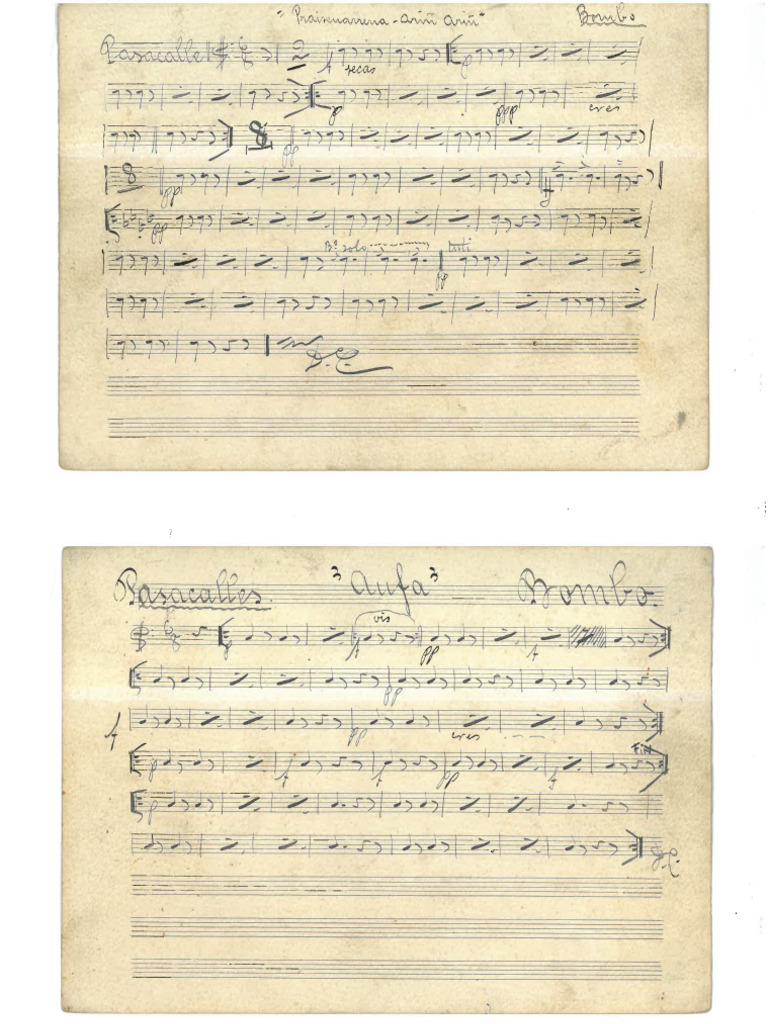 "Praisenarrena - Ariñ Ariñ" Bombo
Pasacalle 2 f secas p
p ppp cres
8 pp
8 pp ff
pp
Bº solo tuti
pp
D.C.
Pasacalles. "Aufa" Bombo.
vis
p f pp f
pp
f pp cres
Fin
p f f pp f
p
D.C.